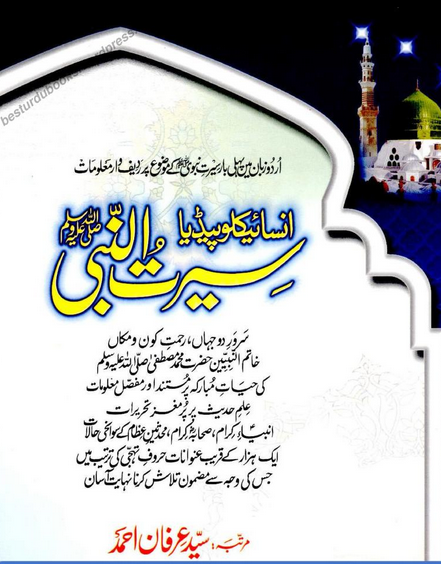 besturdubooks.wordpress.
اُردو زبان میں پہلی بار سیرت نبوی ﷺ کے موضوع پر ردیف وار معلومات
انسائیکلوپیڈیا
سیرت النّبی صلی اللہ علیہ وسلم
سَرورِ دو جہاں، رحمتِ کون و مکاں
خاتم النبیین حضرت محمد مصطفٰی صلی اللہ علیہ وسلم
کی حیاتِ مُبارکہ پر مُستند اور مفصّل معلومات
علمِ حدیث پر پُر مغز تحریرات
انبیاءِ کرام، صحابہ کرام، محدثین عظام کے سوانحی حالات
ایک ہزار کے قریب عنوانات حروفِ تہجّی کی ترتیب میں
جس کی وجہ سے مضمون تلاش کرنا نہایت آسان
مرتبہ: سیّد عرفان احمد